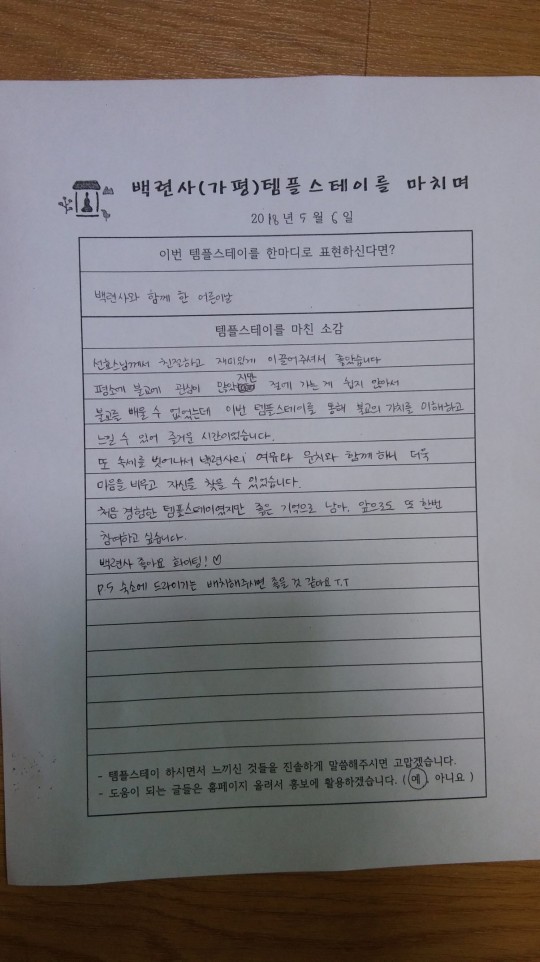 백련사(가평)템플스테이를 마치며
2018년 5월 6일
이번 템플스테이를 한마디로 표현하신다면?
백련사와 함께 한 어린이날
템플스테이를 마친 소감
선효스님께서 친절하고 재미있게 이끌어주셔서 좋았습니다
평소에 불교에 관심이 많았지만 절에 가는 게 쉽지 않아서
불교를 배울 수 없었는데 이번 템플스테이를 통해 불교의 가치를 이해하고
느낄 수 있어 즐거운 시간이었습니다.
또 속세를 벗어나서 백련사의 여유와 운치와 함께 하니 더욱
마음을 비우고 자신을 찾을 수 있었습니다.
처음 경험한 템플스테이였지만 좋은 기억으로 남아, 앞으로도 또 한번
참여하고 싶습니다.
백련사 좋아요 화이팅! ♡
P.S 숙소에 드라이기는 배치해주시면 좋을 것 같아요 T.T
- 템플스테이 하시면서 느끼신 것들을 진솔하게 말씀해주시면 고맙겠습니다.
- 도움이 되는 글들은 홈페이지 올려서 홍보에 활용하겠습니다. ( 예 , 아니요 )